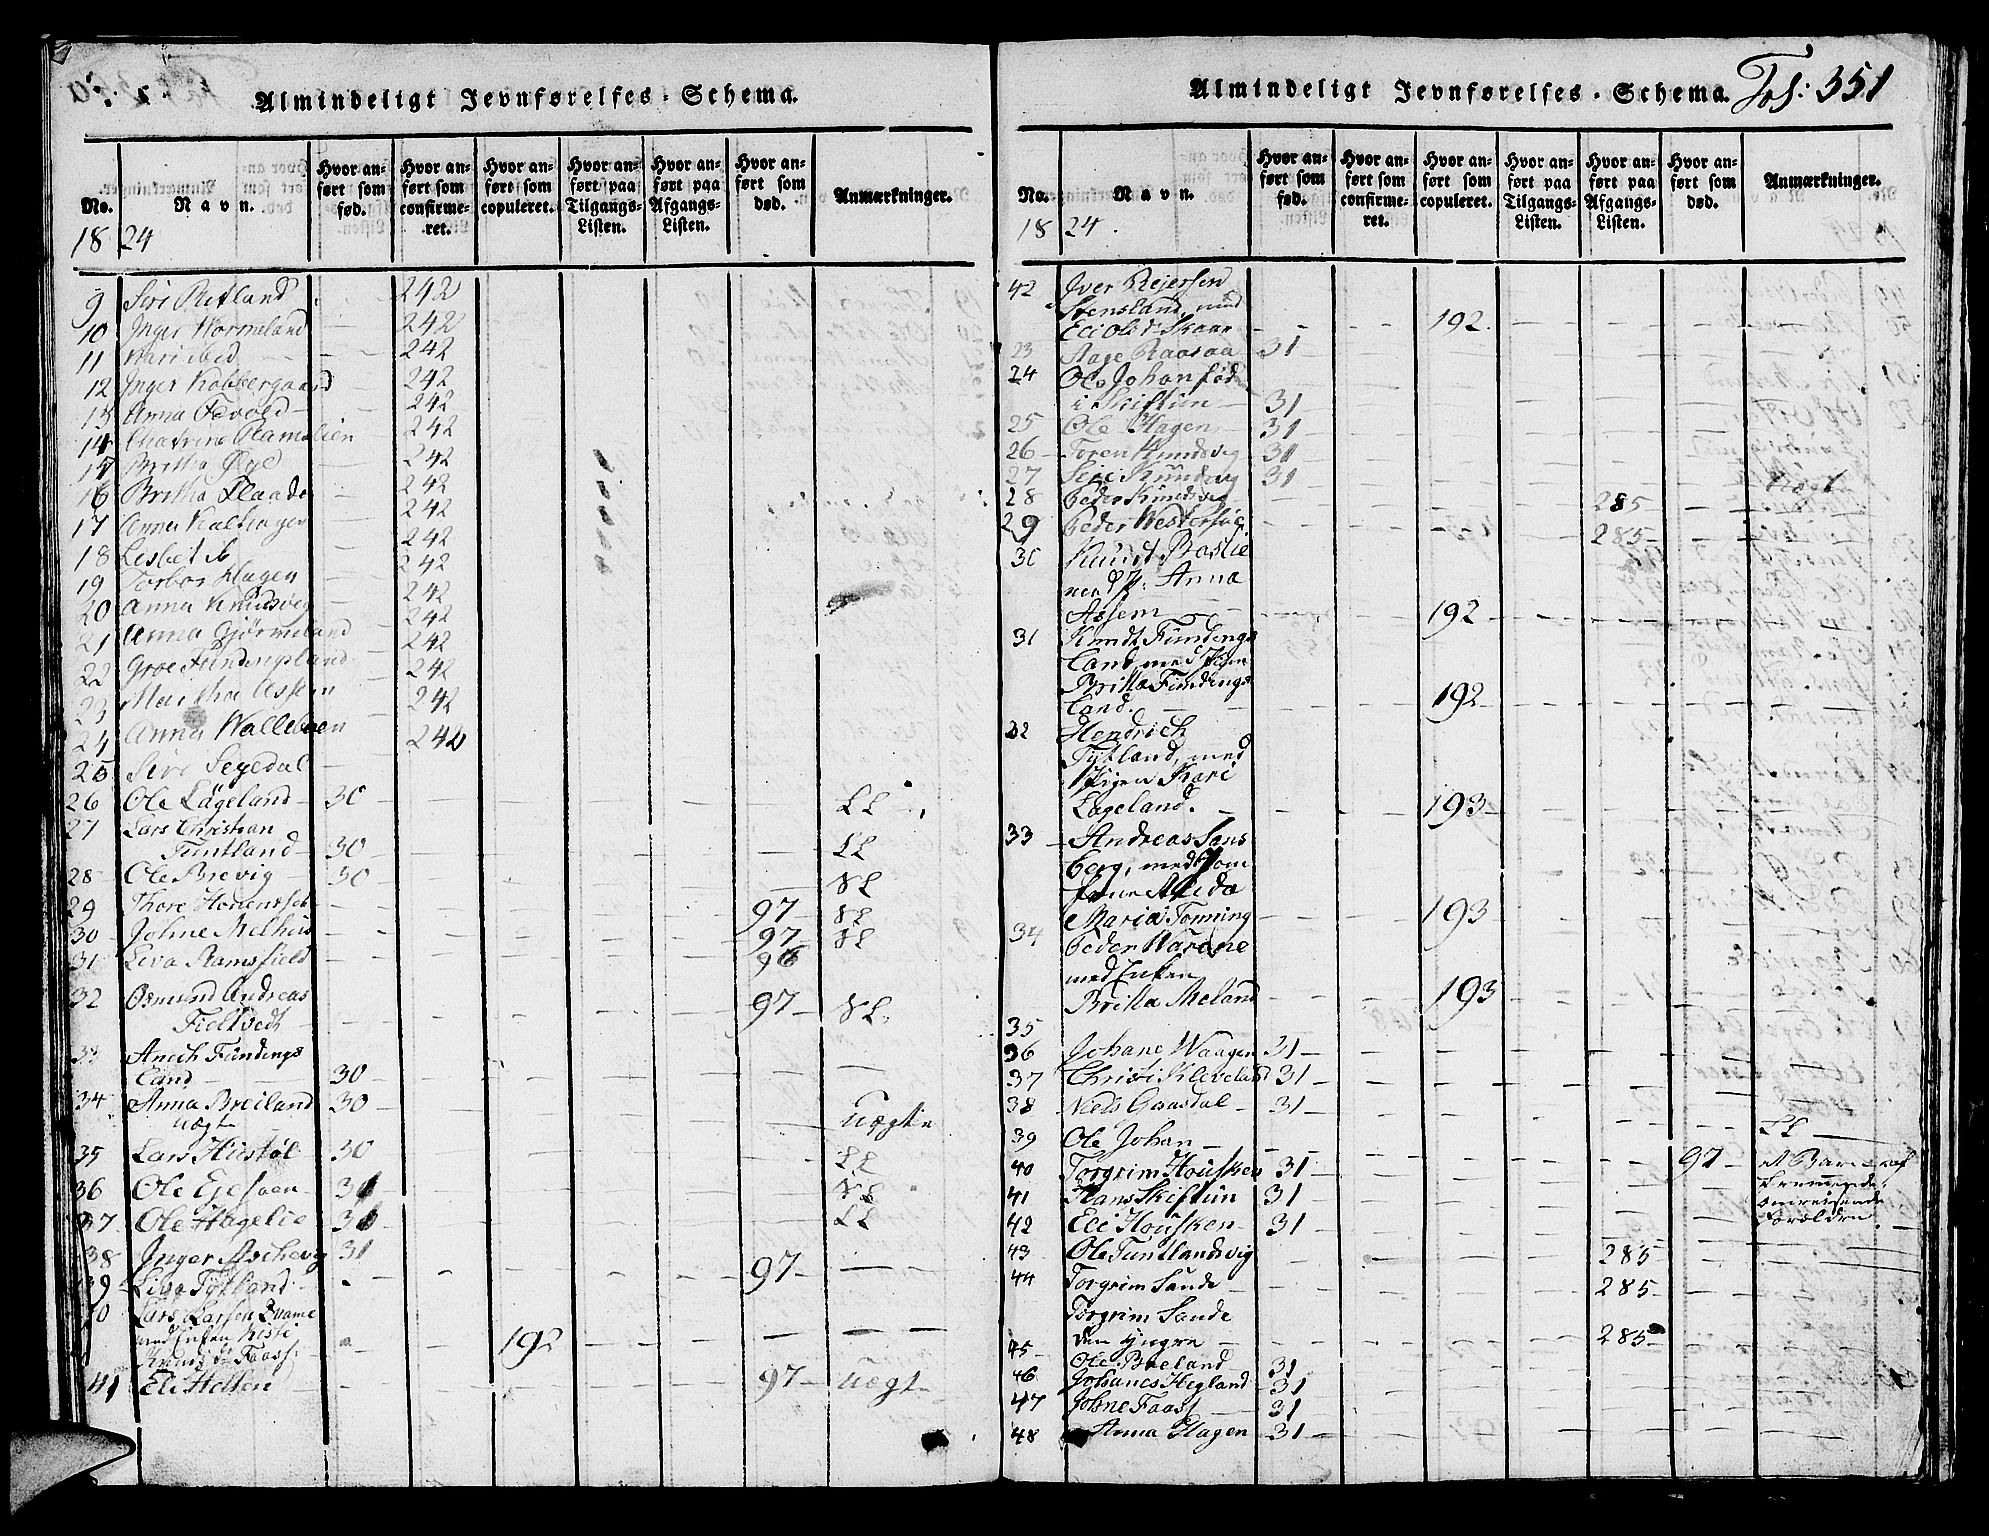 Almindeligt Jevnførelses-Schema.
No. Navn. Hvor anført som fød. Hvor anført som confirmeret. Hvor anført som copuleret. Hvor anført paa Tilgangs-Listen. Hvor anført paa Afgangs-Listen. Hvor anført som død. Anmærkninger.
18 24
9 Siri Rutland 242
10 Inger Wormeland 242
11 Kari ibid 242
12 Inger Kobbergaard 242
13 Anna Fevold 242
14 Chatrine Ramslien 242
15 Britha Øye 242
16 Britha Flaade 242
17 Anna Kalhagen 242
18 Lisbet 242
19 Torbor Hagen 242
20 Anna Knudsvig 242
21 Anna Gjørmeland 242
22 Groe Fundingsland 242
23 Martha Assem 242
24 Anna Walleboen 242
25 Siri Segedal 242
26 Ole Lögeland 30 LL
27 Lars Christian
Tuntland 30 LL
28 Ole Brevig 30 NL
29 Thore 97 NL
30 Johne Melhus 97 NL
31 Liva Ramsfield 96
32 Osmund Andreas
Fieltvedt 97 NL
33 Anech Fundings
land 30
34 Anna Breiland 30
uægt uægte
35 Lars Hustøl 30 LL
36 Ole Ejesaen 31 NL
37 Ole Hagelie 31 LL
38 Inger Aschevig 31
39 Liva Tytland 97
40 Lars Larsen Qvame
med Enken Kisti
Knuds dr Faass: 192
41 Eli Helsen 97 uægt
Almindeligt Jevnførelses-Schema. Fol: 351
No. Navn. Hvor anført som fød. Hvor anført som confirmeret. Hvor anført som copuleret. Hvor anført paa Tilgangs-Listen. Hvor anført paa Afgangs-Listen. Hvor anført som død. Anmærkninger.
18 24.
42 Iver Reiersen
Stensland, med
Eli Olsdr Skaar 192
23 Aage Raasaa 31
24 Ole Johan fød
i Skiftun 31
25 Ole Hagen 31
26 Toren Knudsvig 31
27 Siri Knudsvig 31
28 Peder Knudsvig 285
29 Peder Westersøe 285
30 Knudt Boslie
med P. Anna
Assem 192
31 Knudt Fundings
land, med Pigen
Britta Fundings
land. 192
32 Hendrich
Tytland, med
Pigen Kari
Lageland. 193
33 Andreas Sans
berg, med Jom
frue Alida
Maria Tonning 193
34 Peder Warene
med Enken
Britta Meland 193
35
36 Johane Waagen 31
37 Christi Kleveland 31
38 Niels Gaasdal 31
39 Ole Johan LL
40 Torgrim Housken 31 97 et Barn af
41 Hans Skiftun 31 fremmede
42 Eli Housken 31 omreisende
Forældre.
43 Ole Tuntlandsvig 285
44 Torgrim Sande 285
Torgrim Sande
45 den yngre 285
Ole Breland 31
46 Johanes Hegland 31
47 Johne Faass 31
48 Anna Hagen 31